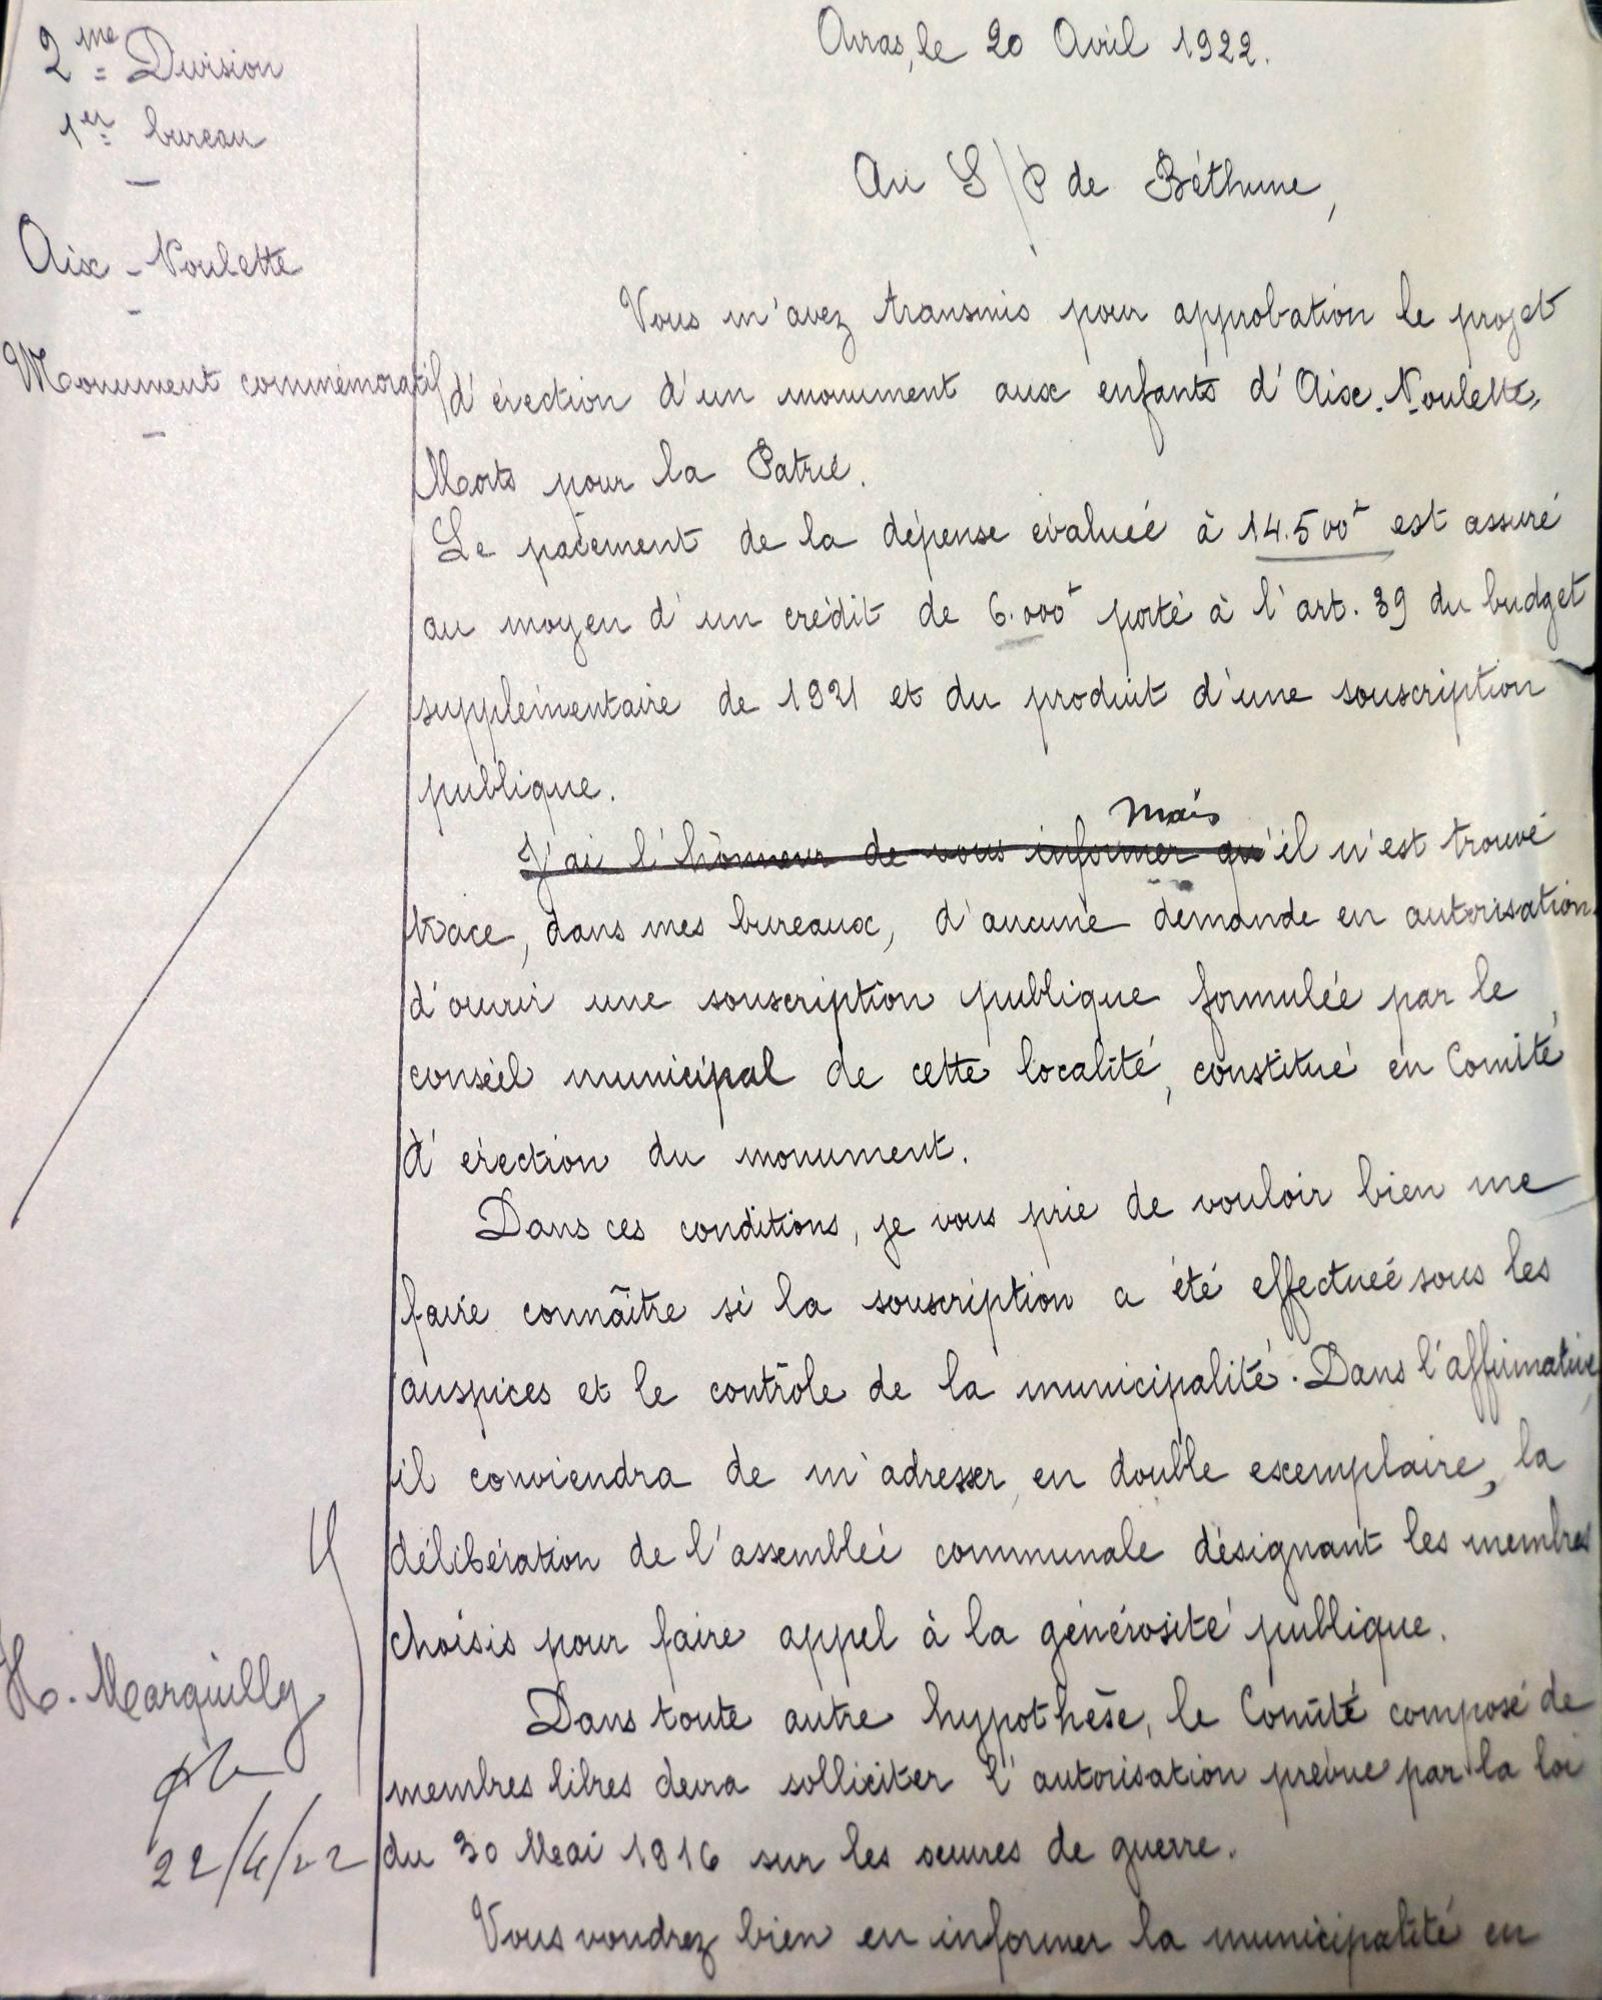 2me Division
1er bureau
Aix-Noulette
Monument commémoratif
Arras, le 20 Avril 1922.
Au S/P de Béthune,
Vous m'avez transmis pour approbation le projet
d'érection d'un monument aux enfants d'Aix-Noulette,
Morts pour la Patrie.
Le paiement de la dépense évaluée à 14.500f est assuré
au moyen d'un crédit de 6.000f porté à l'art. 39 du budget
supplémentaire de 1921 et du produit d'une souscription
publique.
mais
J'ai l'honneur de vous informer qu'il n'est trouvé
trace, dans mes bureaux, d'aucune demande en autorisation
d'ouvrir une souscription publique formulée par le
conseil municipal de cette localité, constitué en Comité
d'érection du monument.
Dans ces conditions, je vous prie de vouloir bien me
faire connaître si la souscription a été effectuée sous les
auspices et le contrôle de la municipalité. Dans l'affirmative,
il conviendra de m'adresser, en double exemplaire, la
délibération de l'assemblée communale désignant les membres
choisis pour faire appel à la générosité publique.
Dans toute autre hypothèse, le Comité composé de
membres libres devra solliciter l'autorisation prévue par la loi
du 30 Mai 1916 sur les oeuvres de guerre.
Vous voudrez bien en informer la municipalité en
H. Marquilly
22/4/22